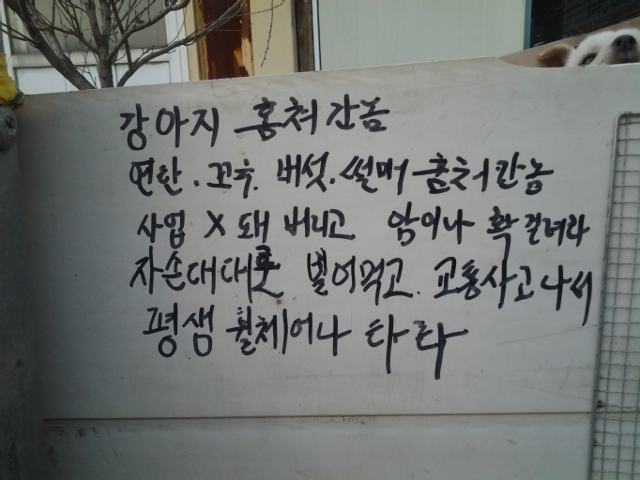 강아지 훔쳐간놈
연탄. 꼬추. 버섯. 썰매 훔쳐간놈
사업 X돼 버리고 암이나 확 걸려라
자손대대로 빌어먹고. 교통사고나서
평생 휠체어나 타라